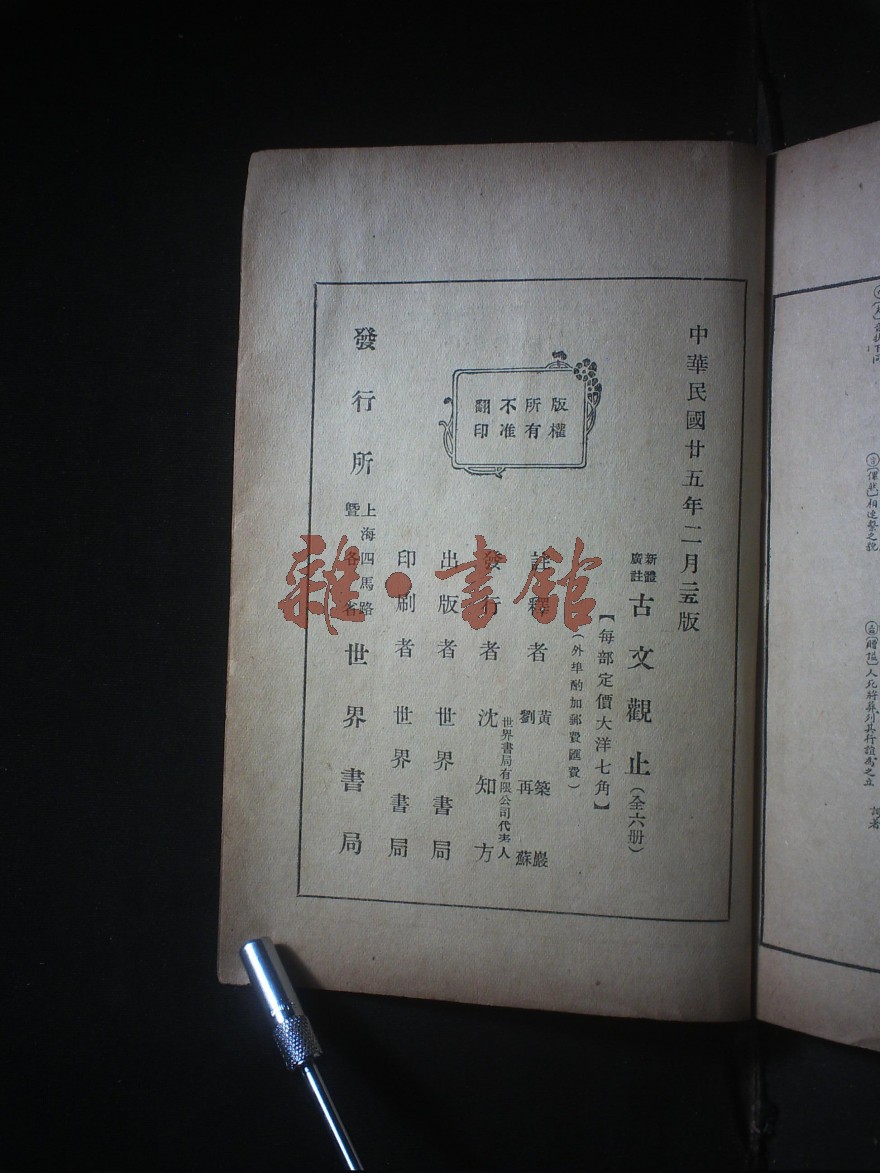 中華民國廿五年二月三五版
新體廣註
古文觀止(全六册)
【每部定價大洋七角】
(外埠酌加郵費匯費)
註釋者 黃築巖 劉再蘇
發行者 世界書局有限公司代表人 沈知方
出版者 世界書局
印刷者 世界書局
發行所 上海四馬路暨各省 世界書局
版權所有不准翻印
雜·書館
相連繫之貌
人死將葬列其行讀為之立